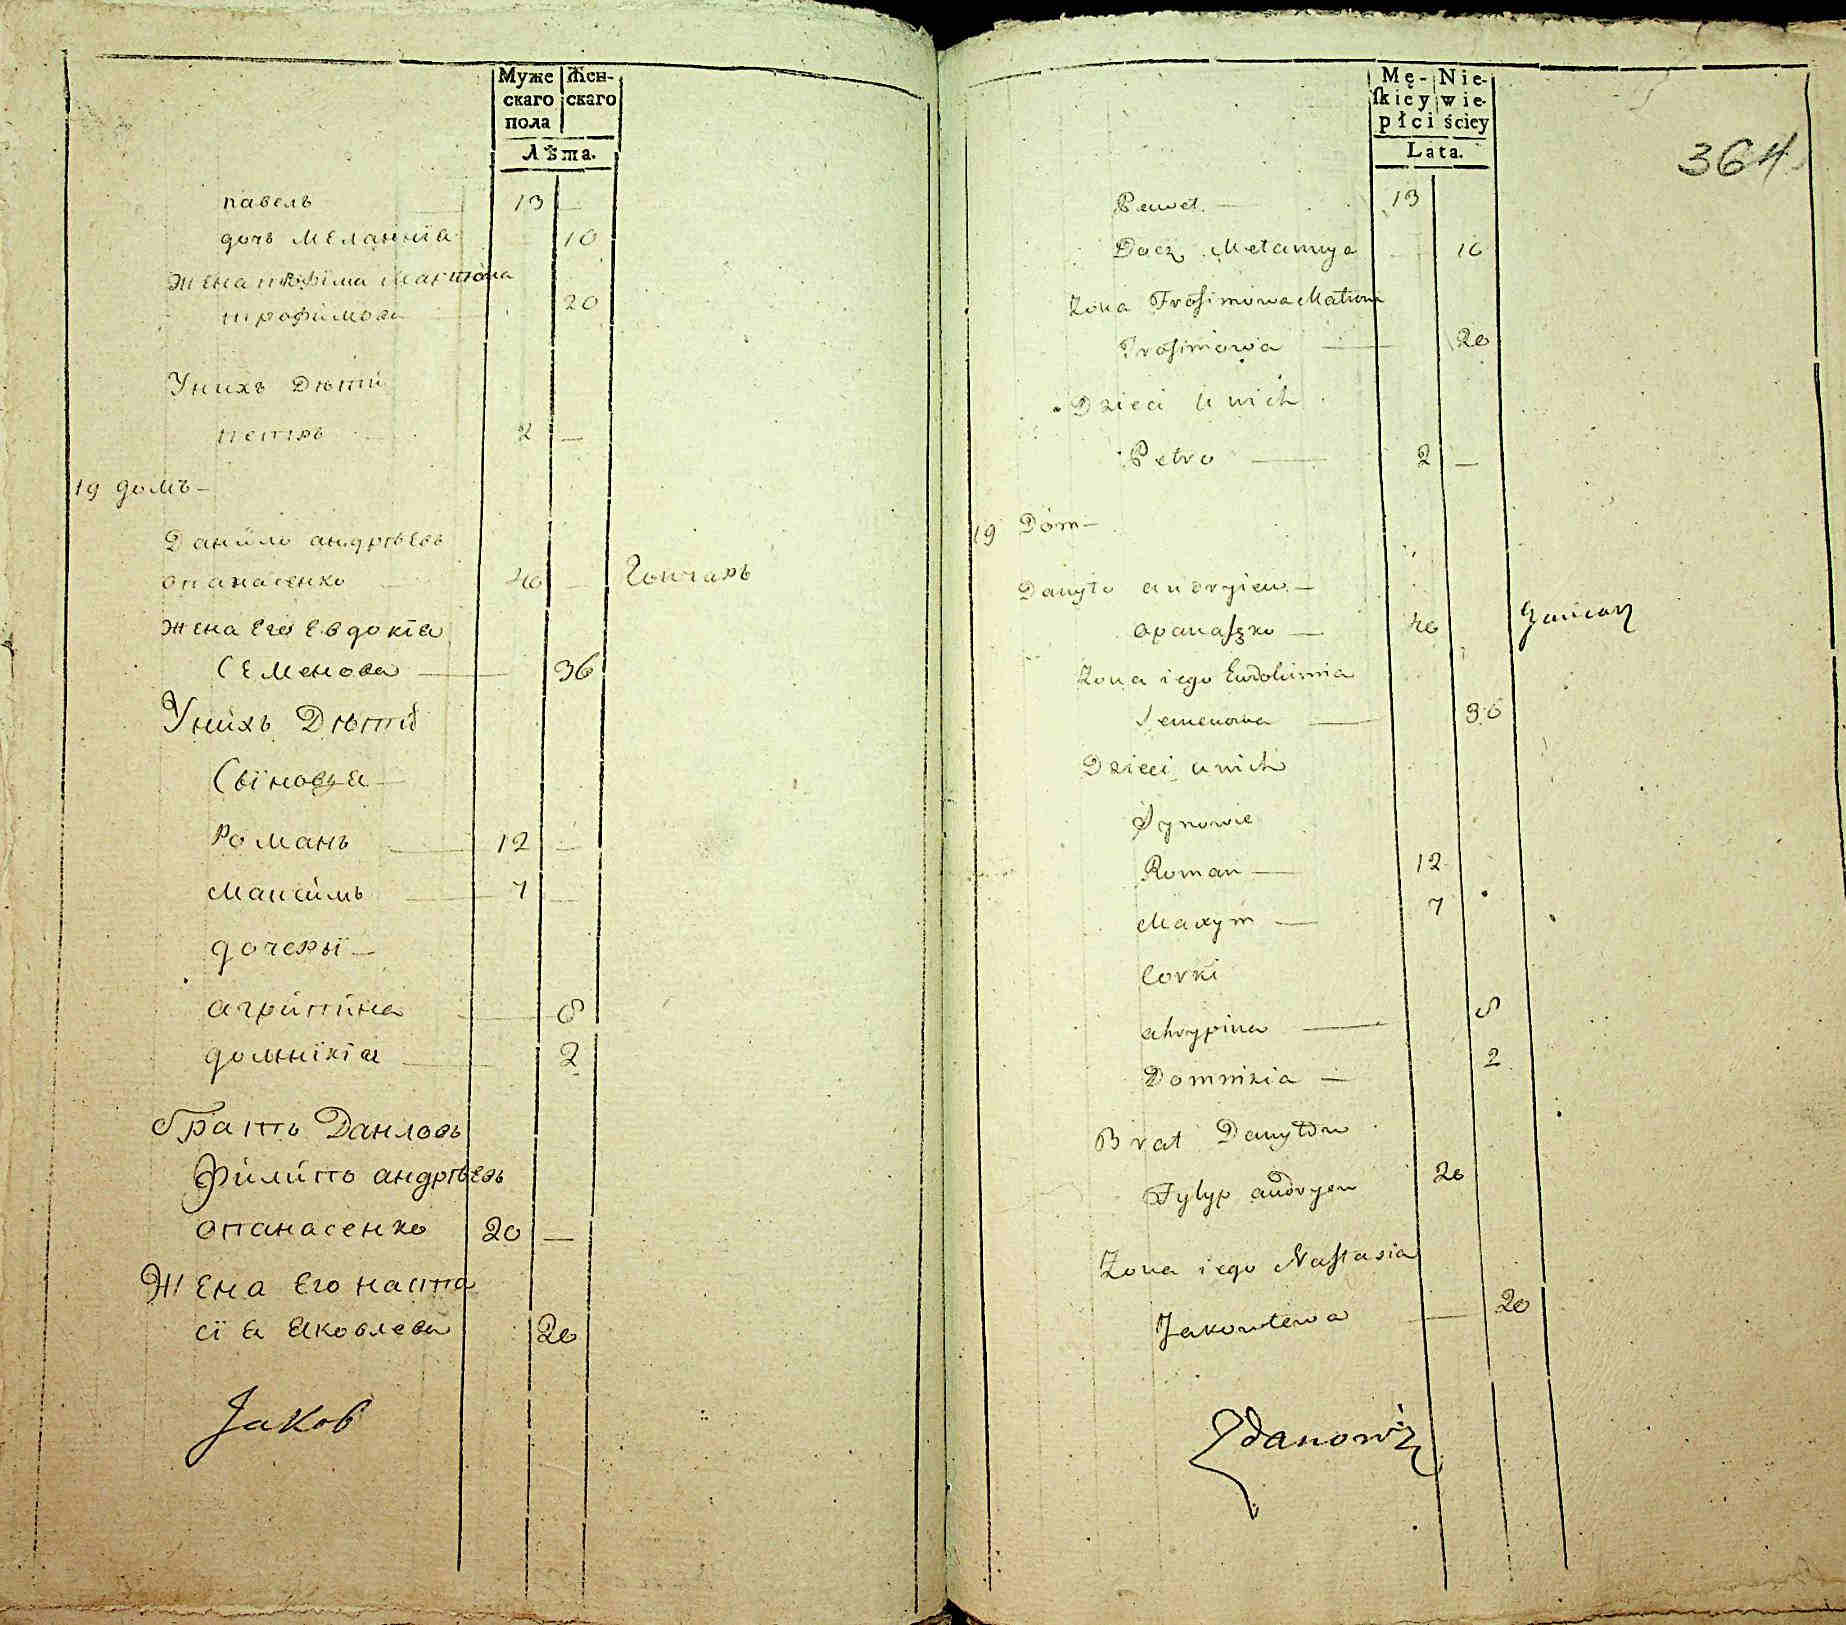 Муже Жен-
скаго скаго
пола
Лѣта.
павелъ 13 —
дочь меланиїа 10
Жена трофима Мартона
трофимова 20
Унихъ Дѣти
петръ 2 —
19 домъ —
Данило андрѣевъ
опанасенко 40 — Гончаръ
жена его Евдокїа
Семенова 36
Унихъ Дѣти
Сыновья —
Романъ 12 —
максимъ 7 —
дочеры —
агрипина 8
домнїкїа 2
братъ Данловъ
Филипъ андрѣевъ
опанасенко 20 —
Жена Его наста
сїа Яковлева 20
Jakob
Mę- Nie-
ſkiey wie-
płci ściey
Lata.
364
Paweł — 13
Docz Mełannya 10
Zona Trofimowa Matrona
Trofimowa — 20
Dzieci u nich
Petro — 2 —
19 Dom —
Danyło andryiew —
opanaſzko — 40 Gancarz
Zona iego Ewdokimia
Semenowa — 36
Dzieci u nich
Synowie
Roman — 12
Maxym — 7
Corki
ahrypina — 8
Domnikia — 2
Brat Danyłow
Fylyp andryew 20
Zona iego Naſtasia
Jakowlewa — 20
Zdanowicz